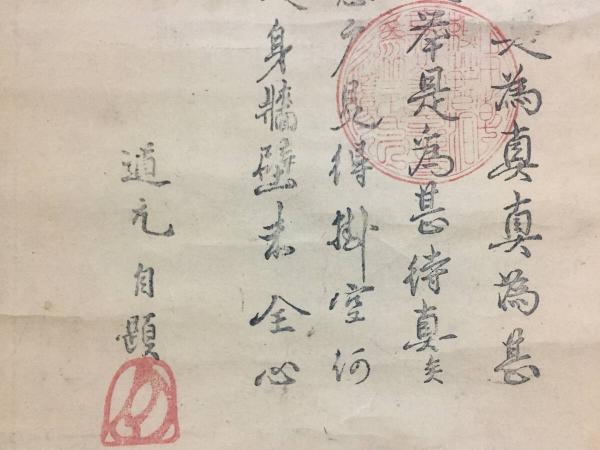 為真真為甚
挙是為甚待真矣
見得掛空何
身牆壁未全心
道元自題